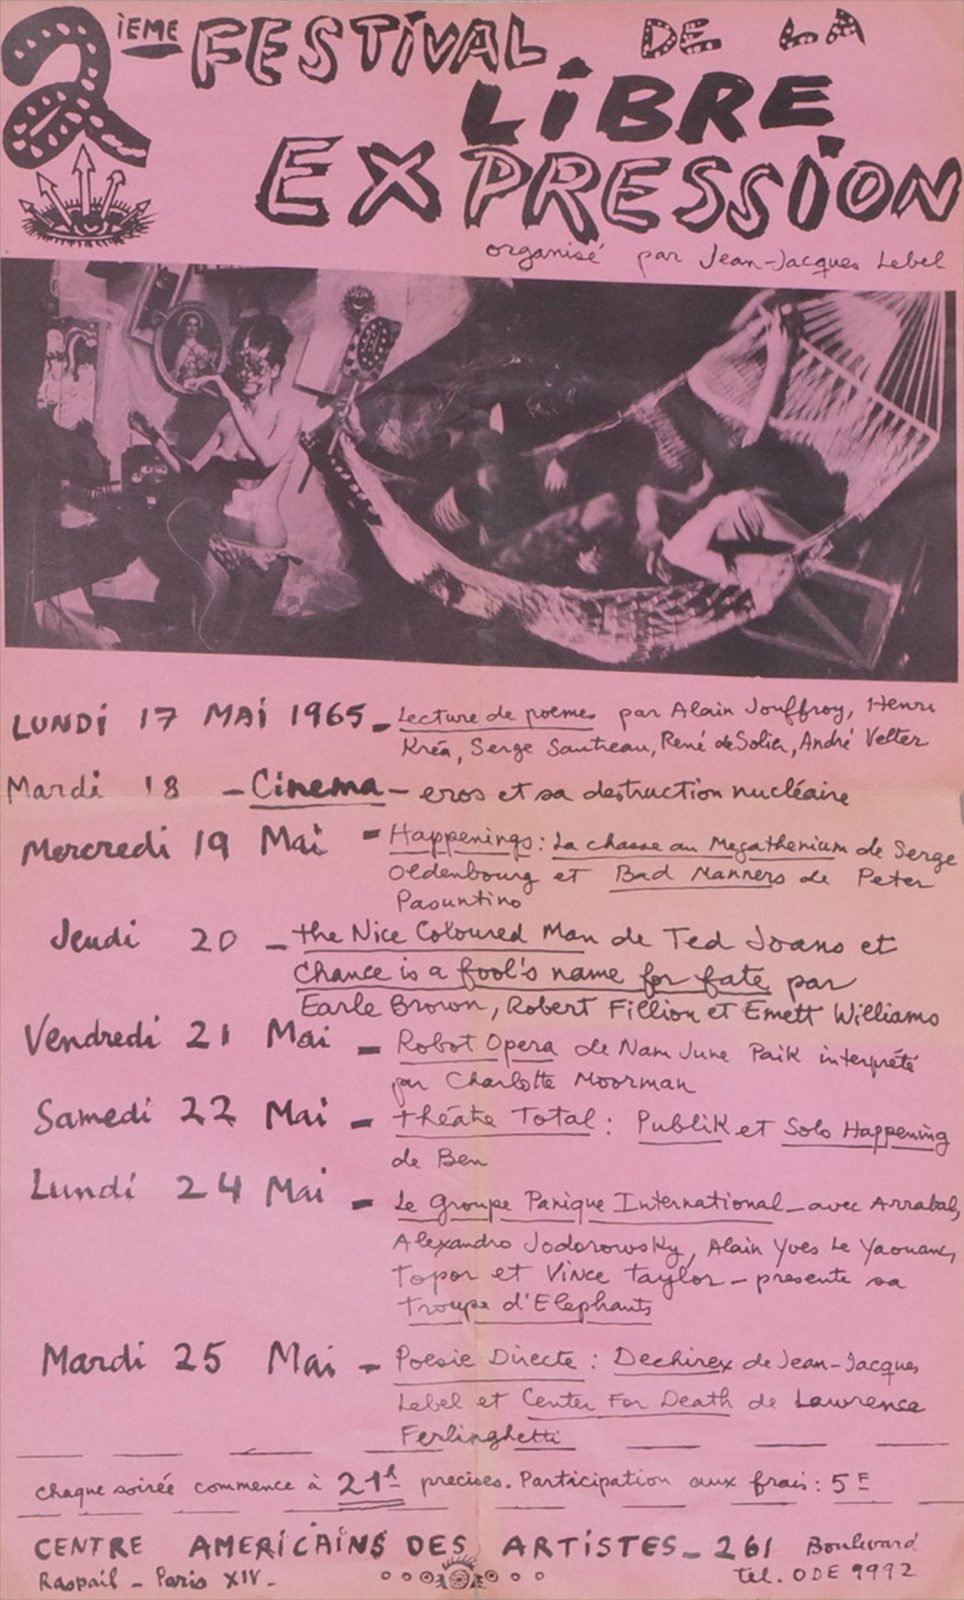 2ième FESTiVAL DE LA
LiBRE
EXPRESSiON
organisé par Jean-Jacques Lebel
LUNDi 17 MAi 1965 - Lecture de poèmes par Alain Jouffroy, Henri
Kréa, Serge Sautreau, René de Solier, André Velter
Mardi 18 - Cinema - eros et sa destruction nucléaire
Mercredi 19 Mai - Happenings : La chasse au Megatherium de Serge
Oldenbourg et Bad Manners de Peter
Pasuntino
Jeudi 20 - the Nice Coloured Man de Ted Joans et
Chance is a fool's name for fate par
Earle Brown, Robert Fillion et Emett Williams
Vendredi 21 Mai - Robot Opera de Nam June Paik interprété
par Charlotte Moorman
Samedi 22 Mai - théâtre Total : Publik et Solo Happening
de Ben
Lundi 24 Mai - Le Groupe Panique International - avec Arrabal,
Alexandro Jodorowsky, Alain Yves Le Yaouanc,
Topor et Vince taylor - presente sa
troupe d'Elephants
Mardi 25 Mai - Poesie Directe : Dechirex de Jean-Jacques
Lebel et Center For Death de Lawrence
Ferlinghetti
chaque soirée commence à 21h precises. Participation aux frais : 5 F
CENTRE AMERiCAiNS DES ARTiSTES - 261 Boulevard
Raspail - Paris XIV - tel. ODE 9992